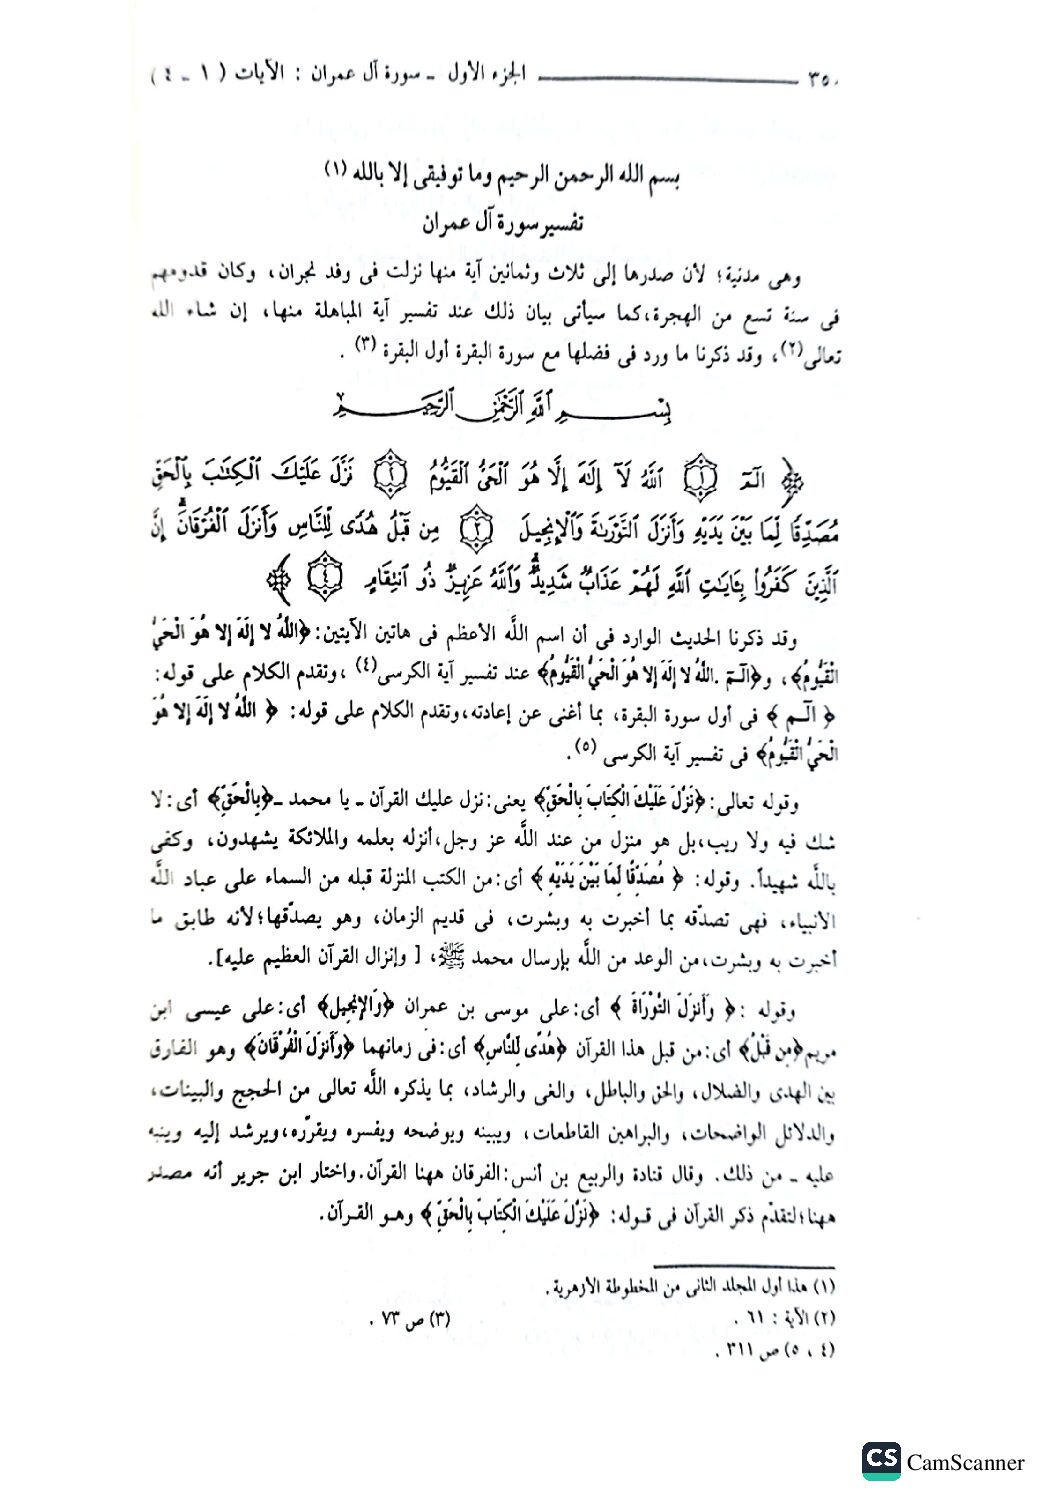 ٣٥٠ الجزء الأول - سورة آل عمران : الآيات ( ١ - ٤ )
بسم الله الرحمن الرحيم وما توفيقى إلا بالله (١)
تفسير سورة آل عمران
وهى مدنية؛ لأن صدرها إلى ثلاث وثمانين آية منها نزلت فى وفد نجران، وكان قدومهم
فى سنة تسع من الهجرة،كما سيأتى بيان ذلك عند تفسير آية المباهلة منها، إن شاء الله
تعالى(٢)، وقد ذكرنا ما ورد فى فضلها مع سورة البقرة أول البقرة (٣) .
بِسْمِ اللَّهِ الرَّحْمَٰنِ الرَّحِيمِ
﴿ الٓمٓ ١ ٱللَّهُ لَآ إِلَٰهَ إِلَّا هُوَ ٱلْحَىُّ ٱلْقَيُّومُ ٢ نَزَّلَ عَلَيْكَ ٱلْكِتَٰبَ بِٱلْحَقِّ
مُصَدِّقًا لِّمَا بَيْنَ يَدَيْهِ وَأَنزَلَ ٱلتَّوْرَىٰةَ وَٱلْإِنجِيلَ ٣ مِن قَبْلُ هُدًى لِّلنَّاسِ وَأَنزَلَ ٱلْفُرْقَانَۗ إِنَّ
ٱلَّذِينَ كَفَرُوا۟ بِـَٔايَٰتِ ٱللَّهِ لَهُمْ عَذَابٌ شَدِيدٌۗ وَٱللَّهُ عَزِيزٌ ذُو ٱنتِقَامٍ ٤ ﴾
وقد ذكرنا الحديث الوارد فى أن اسم اللَّه الأعظم فى هاتين الآيتين:﴿اللَّهُ لا إِلَهَ إِلا هُوَ الْحَيُّ
الْقَيُّومُ﴾، و﴿الٓـمٓ .اللَّهُ لا إِلَهَ إِلا هُوَ الْحَيُّ الْقَيُّومُ﴾ عند تفسير آية الكرسى(٤) ،وتقدم الكلام على قوله:
﴿ الٓـم ﴾ فى أول سورة البقرة، بما أغنى عن إعادته،وتقدم الكلام على قوله: ﴿ اللَّهُ لا إِلَهَ إِلا هُوَ
الْحَيُّ الْقَيُّومُ﴾ فى تفسير آية الكرسى (٥).
وقوله تعالى:﴿نَزَّلَ عَلَيْكَ الْكِتَابَ بِالْحَقِّ﴾ يعنى:نزل عليك القرآن ـ يا محمد ـ﴿بِالْحَقِّ﴾ أى:لا
شك فيه ولا ريب،بل هو منزل من عند اللَّه عز وجل،أنزله بعلمه والملائكة يشهدون، وكفى
باللَّه شهيداً. وقوله: ﴿ مُصَدِّقًا لِمَا بَيْنَ يَدَيْهِ ﴾ أى:من الكتب المنزلة قبله من السماء على عباد اللَّه
الأنبياء، فهى تصدّقه بما أخبرت به وبشرت، فى قديم الزمان، وهو يصدّقها؛لأنه طابق ما
أخبرت به وبشرت،من الوعد من اللَّه بإرسال محمد ﷺ، [ وإنزال القرآن العظيم عليه].
وقوله :﴿ وَأَنزَلَ التَّوْرَاةَ ﴾ أى:على موسى بن عمران ﴿وَالإِنجِيلَ﴾ أى:على عيسى ابن
مريم﴿مِن قَبْلُ﴾ أى:من قبل هذا القرآن ﴿هُدًى لِلنَّاسِ﴾ أى:فى زمانهما ﴿وَأَنزَلَ الْفُرْقَانَ﴾ وهو الفارق
بين الهدى والضلال، والحق والباطل، والغى والرشاد، بما يذكره اللَّه تعالى من الحجج والبينات،
والدلائل الواضحات، والبراهين القاطعات، ويبينه ويوضحه ويفسره ويقرّره،ويرشد إليه وينبه
عليه ـ من ذلك. وقال قتادة والربيع بن أنس:الفرقان ههنا القرآن.واختار ابن جرير أنه مصدر
ههنا؛لتقدّم ذكر القرآن فى قوله: ﴿نَزَّلَ عَلَيْكَ الْكِتَابَ بِالْحَقِّ﴾ وهو القرآن.
(١) هذا أول المجلد الثانى من المخطوطة الأزهرية.
(٢) الآية : ٦١ . (٣) ص ٧٣ .
(٤ ، ٥) ص ٣١١ .
CS CamScanner